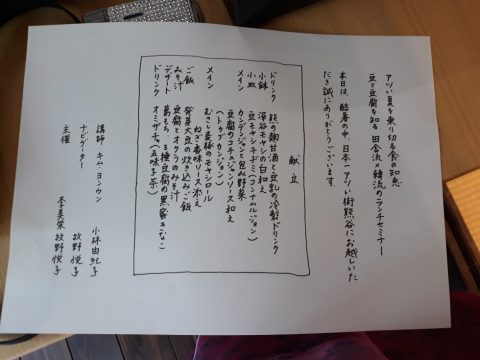 アツい夏を乗り切る食の知恵
豆と豆腐を知る 田舎流×韓流のランチセミナー
本日は、酷暑の中、日本一アツい街熊谷にお越しいた
だき誠にありがとうございます。
献立
ドリンク 熊の麹甘酒と豆乳の冷製ドリンク
小鉢 深谷モヤシの白和え
小皿 豆モヤシチヂミ(コンナムルジョン)
メイン カンデンジャンと包み野菜
豆腐のコチュジャンソース和え
(トゥブカンジョン)
メイン むさし麦豚のモヤシロール
ねぎ香味ソース添え
ご飯 発芽大豆の炊き込みご飯
みそ汁 豆腐とオクラのみそ汁
デザート 葛もち、3種豆腐の黒蜜きなこ
ドリンク オミザチャ(五味子茶)
講師 キム・ヨンウン 小林由紀子
ナビゲーター 牧野悦子
主催 李美栄 牧野悦子